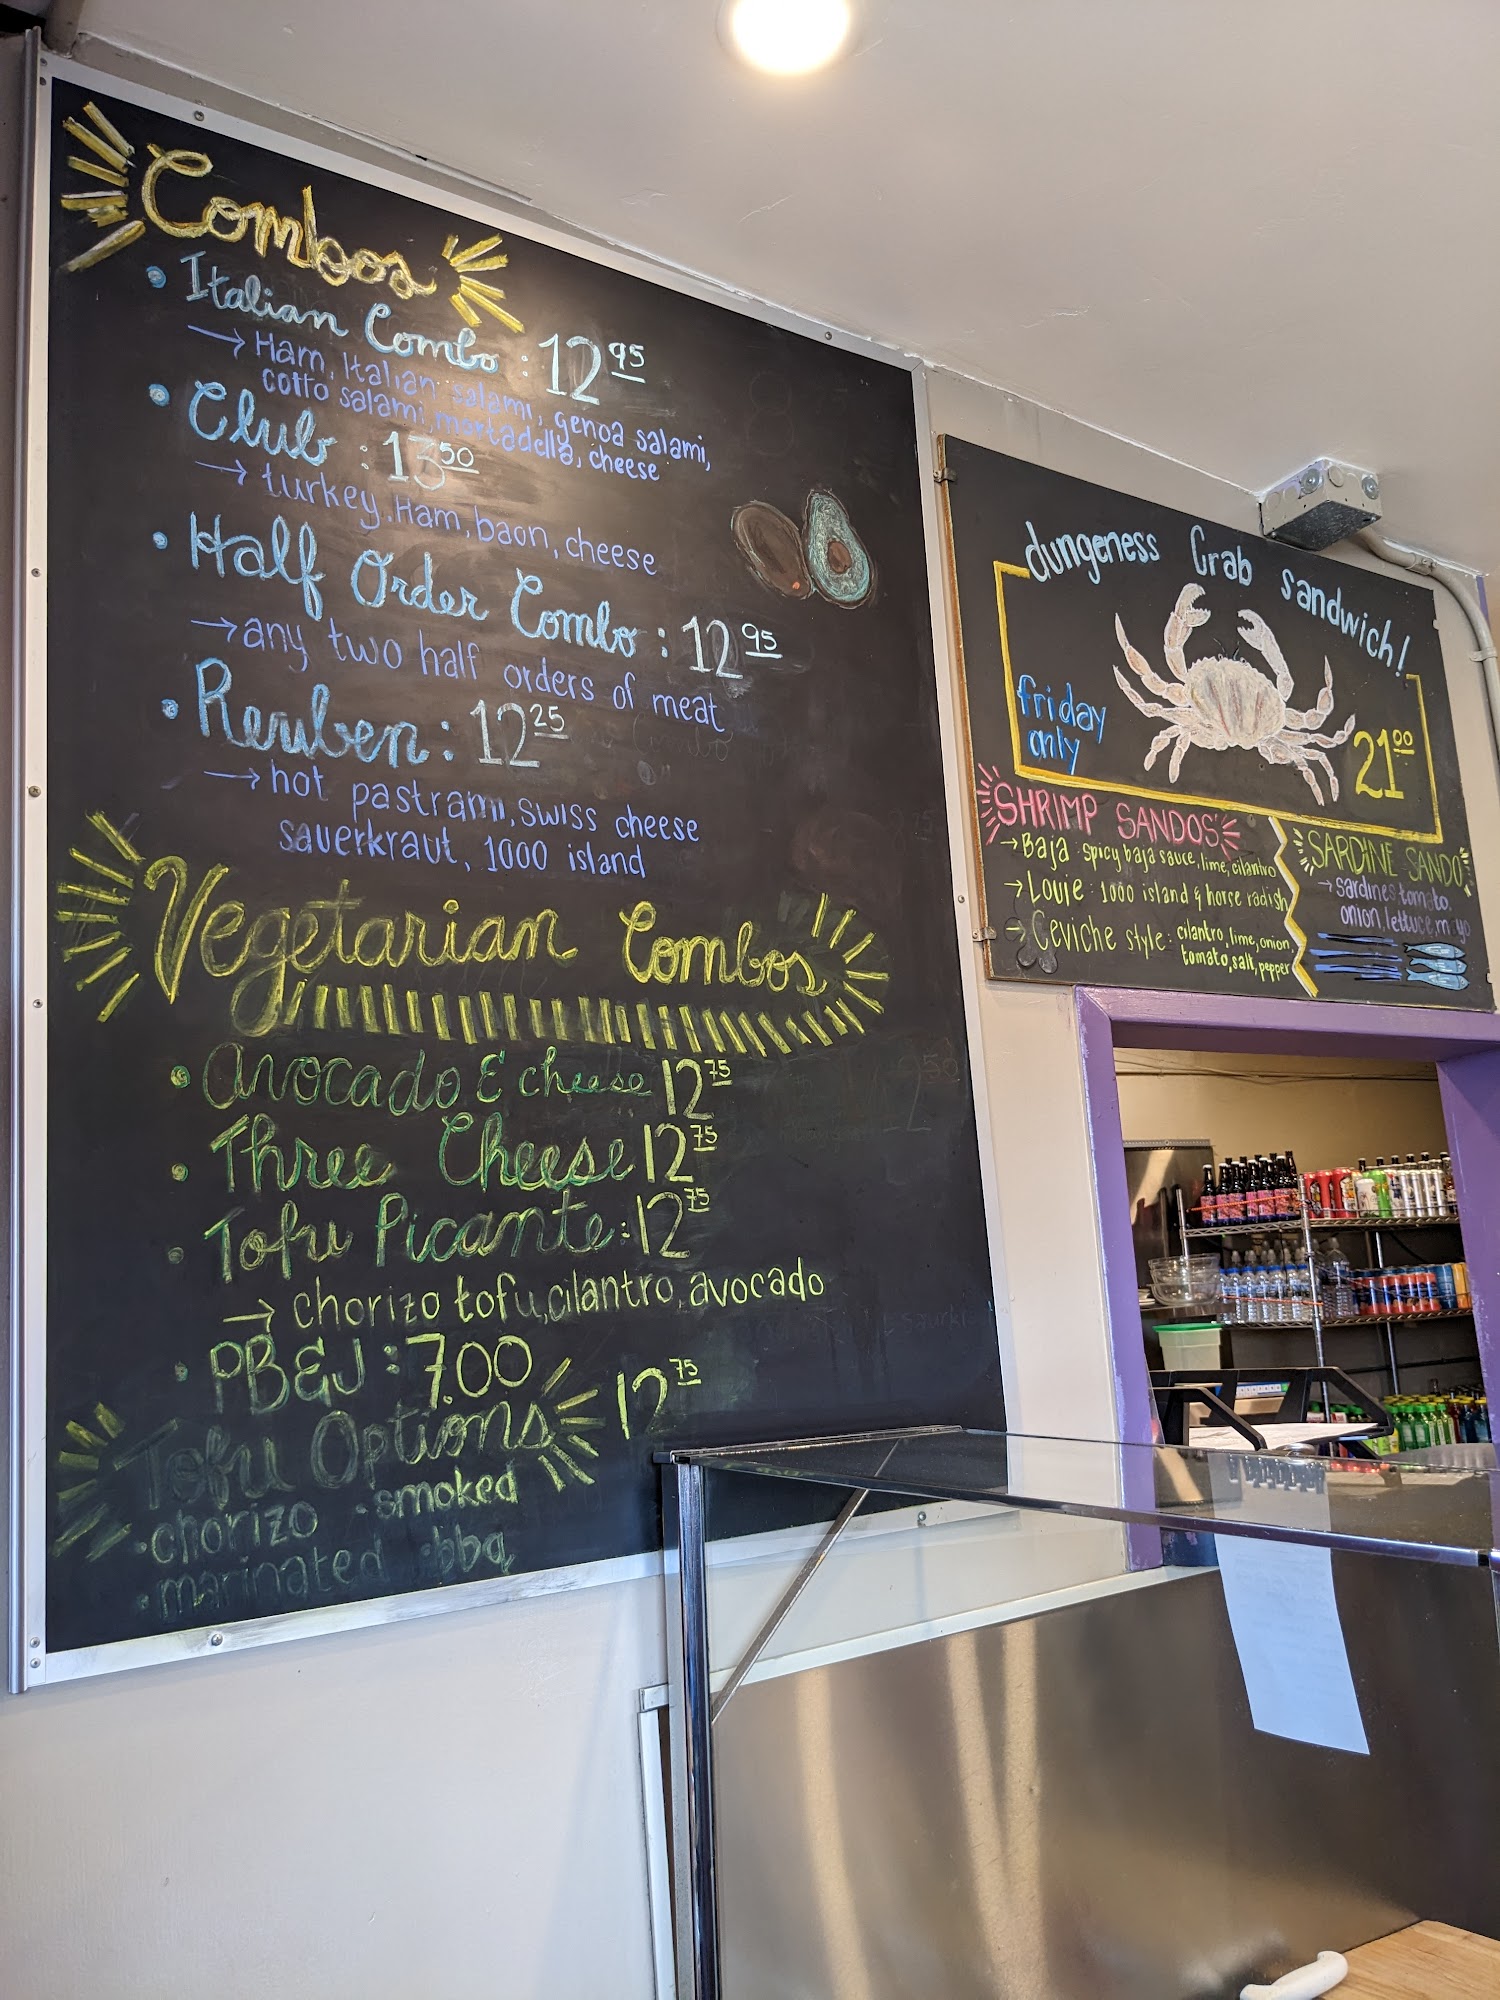 Combos
• Italian Combo : 12 95
→ Ham, Italian salami, genoa salami,
cotto salami, mortadella, cheese
• Club : 13 50
→ turkey, Ham, baon, cheese
• Half Order Combo : 12 95
→ any two half orders of meat
• Reuben : 12 25
→ hot pastrami, swiss cheese
sauerkraut, 1000 island
Vegetarian Combos
• Avocado & cheese 12 75
• Three Cheese 12 75
• Tofu Picante : 12 75
→ chorizo tofu, cilantro, avocado
• PB&J : 7.00
Tofu Options 12 75
• chorizo • smoked
• marinated • bbq
dungeness Crab sandwich!
friday
only
21 00
SHRIMP SANDOS
→ Baja : spicy baja sauce, lime, cilantro
→ Louie : 1000 island & horse radish
→ Ceviche style : cilantro, lime, onion,
tomato, salt, pepper
SARDINE SANDO
→ sardines, tomato,
onion, lettuce, mayo